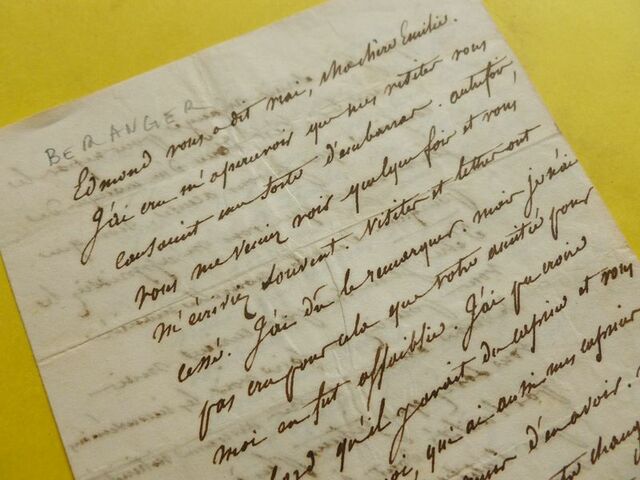 BERANGER
Edmond vous a dit vrai, ma chère Emilie.
J'ai cru m'apercevoir que mes visites vous
causaient une sorte d'embarras. autrefois,
vous me veniez voir quelque fois et vous
m'écriviez souvent. Visites et lettres ont
cessé. J'ai dû le remarquer. mais je n'ai
pas cru pour cela que votre amitié pour
moi en fut affaiblie. J'ai pu croire
qu'il y avait du caprice et vous
moi, qui ai aussi mes caprices
d'en avoir.